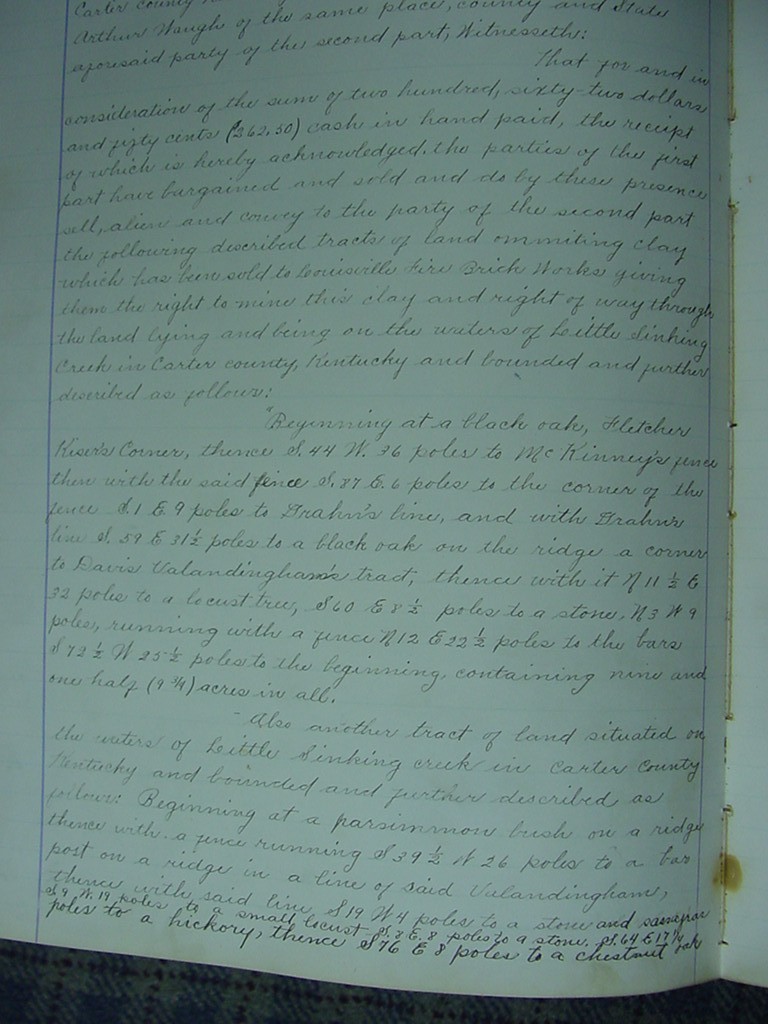 Carter county
Arthur Waugh of the same place, county and State
aforesaid party of the second part, Witnesseth:
That for and in
consideration of the sum of two hundred, sixty-two dollars
and fifty cents ($262,50) cash in hand paid, the receipt
of which is hereby acknowledged. the parties of the first
part have bargained and sold and do by these presence
sell, alien and convey to the party of the second part
the following described tracts of land ommiting clay
which has been sold to Louisville Fire Brick Works giving
them the right to mine this clay and right of way through
the land lying and being on the waters of Little Sinking
Creek in Carter county, Kentucky and bounded and further
described as follows:
"Beginning at a black oak, Fletcher
Kiser's Corner, thence S. 44 W. 36 poles to McKinney's fence
then with the said fence S. 87 E. 6 poles to the corner of the
fence S. 1 E 9 poles to Grahn's line, and with Grahns
line S. 59 E 31½ poles to a black oak on the ridge a corner
to Davis Valandingham's tract, thence with it N 11 ½ E
32 poles to a locust tree, S 60 E 8 ½ poles to a stone, N 3 W 9
poles, running with a fence N 12 E 22 ½ poles to the bars
S 72 ½ W 25 ½ poles to the beginning, containing nine and
one half (9 3/4) acres in all."
Also another tract of land situated on
the waters of Little Sinking creek in Carter County
Kentucky and bounded and further described as
follows: Beginning at a parsimmon bush on a ridge
thence with a fence running S 39 ½ W 26 poles to a bar
post on a ridge in a line of said Valandingham,
thence with said line S 19 W 4 poles to a stone and
S. 9 W. 19 poles to a small locust S. 8 E. 8 poles to a stone. S. 64 E 17
poles to a hickory, thence S 76 E 8 poles to a chestnut oak